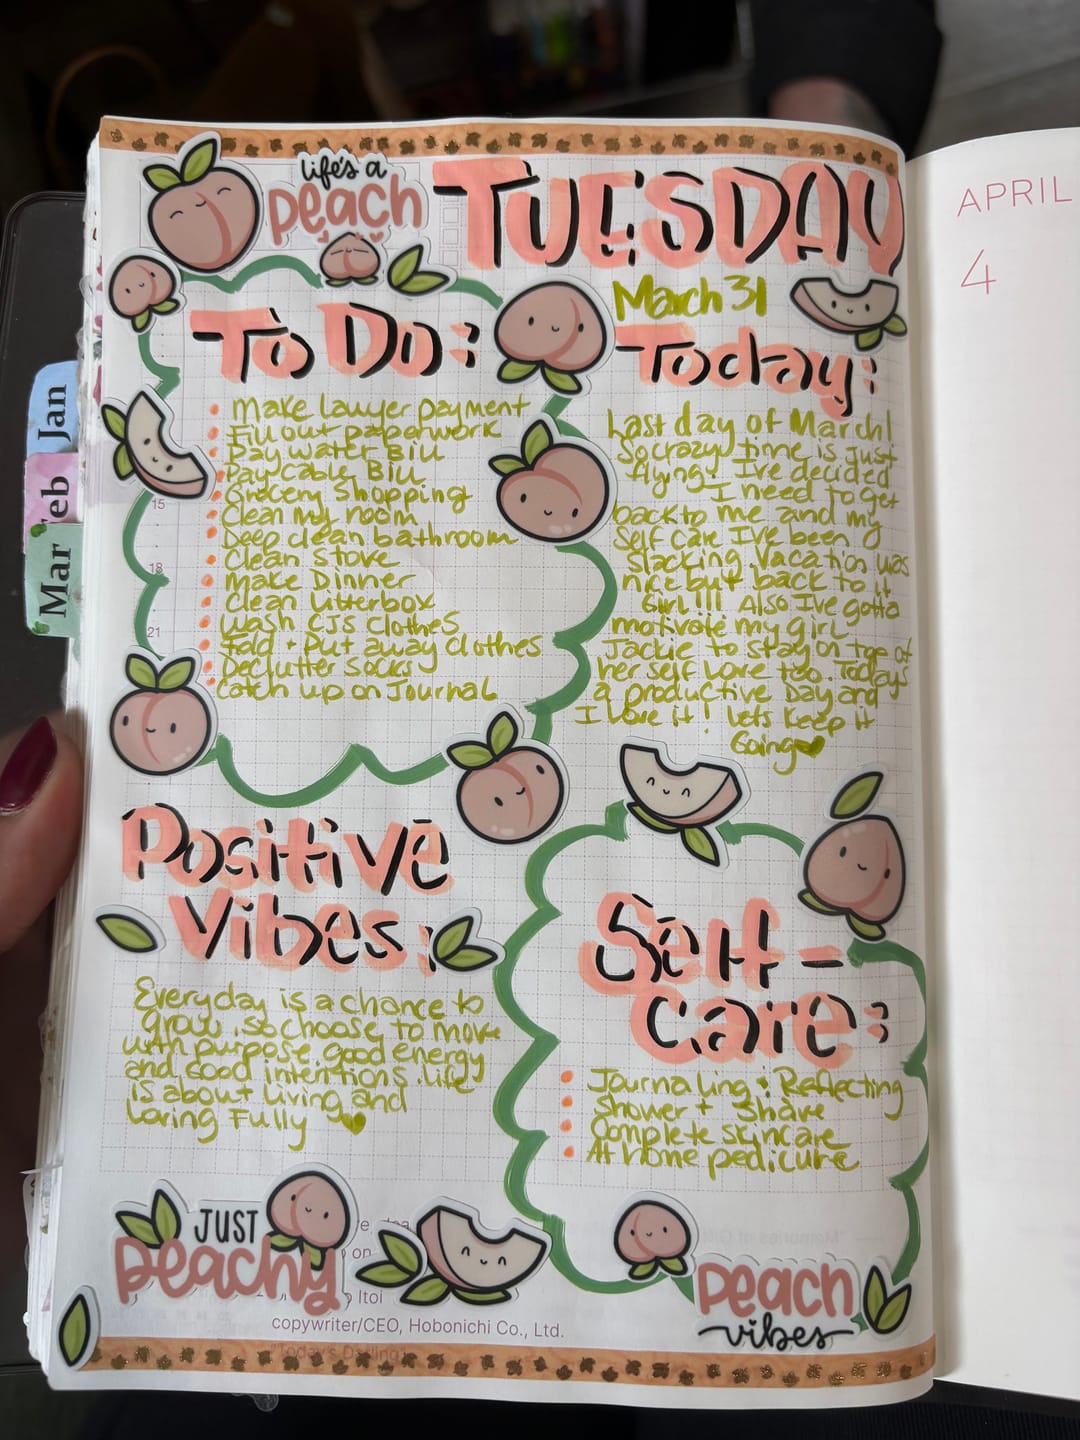 life's a
peach
TUESDAY
March 31
APRIL
4
Jan
Feb
Mar
To Do:
Make lawyer payment
Fill out paperwork
Pay water Bill
Pay Cable Bill
Grocery Shopping
Clean my room
Deep clean bathroom
Clean Stove
Make Dinner
Clean Litterbox
Wash CJs Clothes
Fold + Put away clothes
Declutter socks
Catch up on Journal
15
18
21
Today:
Last day of March!
So crazy time is just
flying. I've decided
I need to get
back to me and my
Self Care I've been
Slacking. Vacation was
nice but back to it
Girl!!! Also I've gotta
motivate my girl
Jackie to stay on top of
her self Love too. Todays
a productive Day and
I love it! Lets Keep it
Going
Positive
Vibes:
Everyday is a chance to
grow, so choose to move
with purpose, good energy
and Good intentions. Life
is about Living and
Loving Fully
Self-
care:
Journaling + Reflecting
Shower + Shave
Complete skincare
At home pedicure
JUST
peachy
on
Itoi
copywriter/CEO, Hobonichi Co., Ltd.
"Today's Darling"
peach
vibes